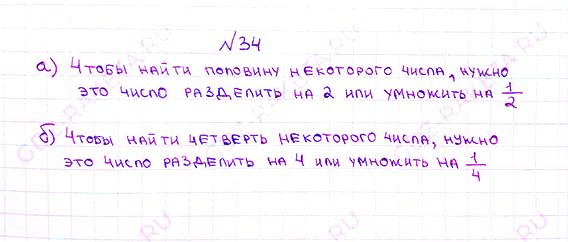 №34
а) Чтобы найти половину некоторого числа, нужно
это число разделить на 2 или умножить на 1/2
б) Чтобы найти четверть некоторого числа, нужно
это число разделить на 4 или умножить на 1/4